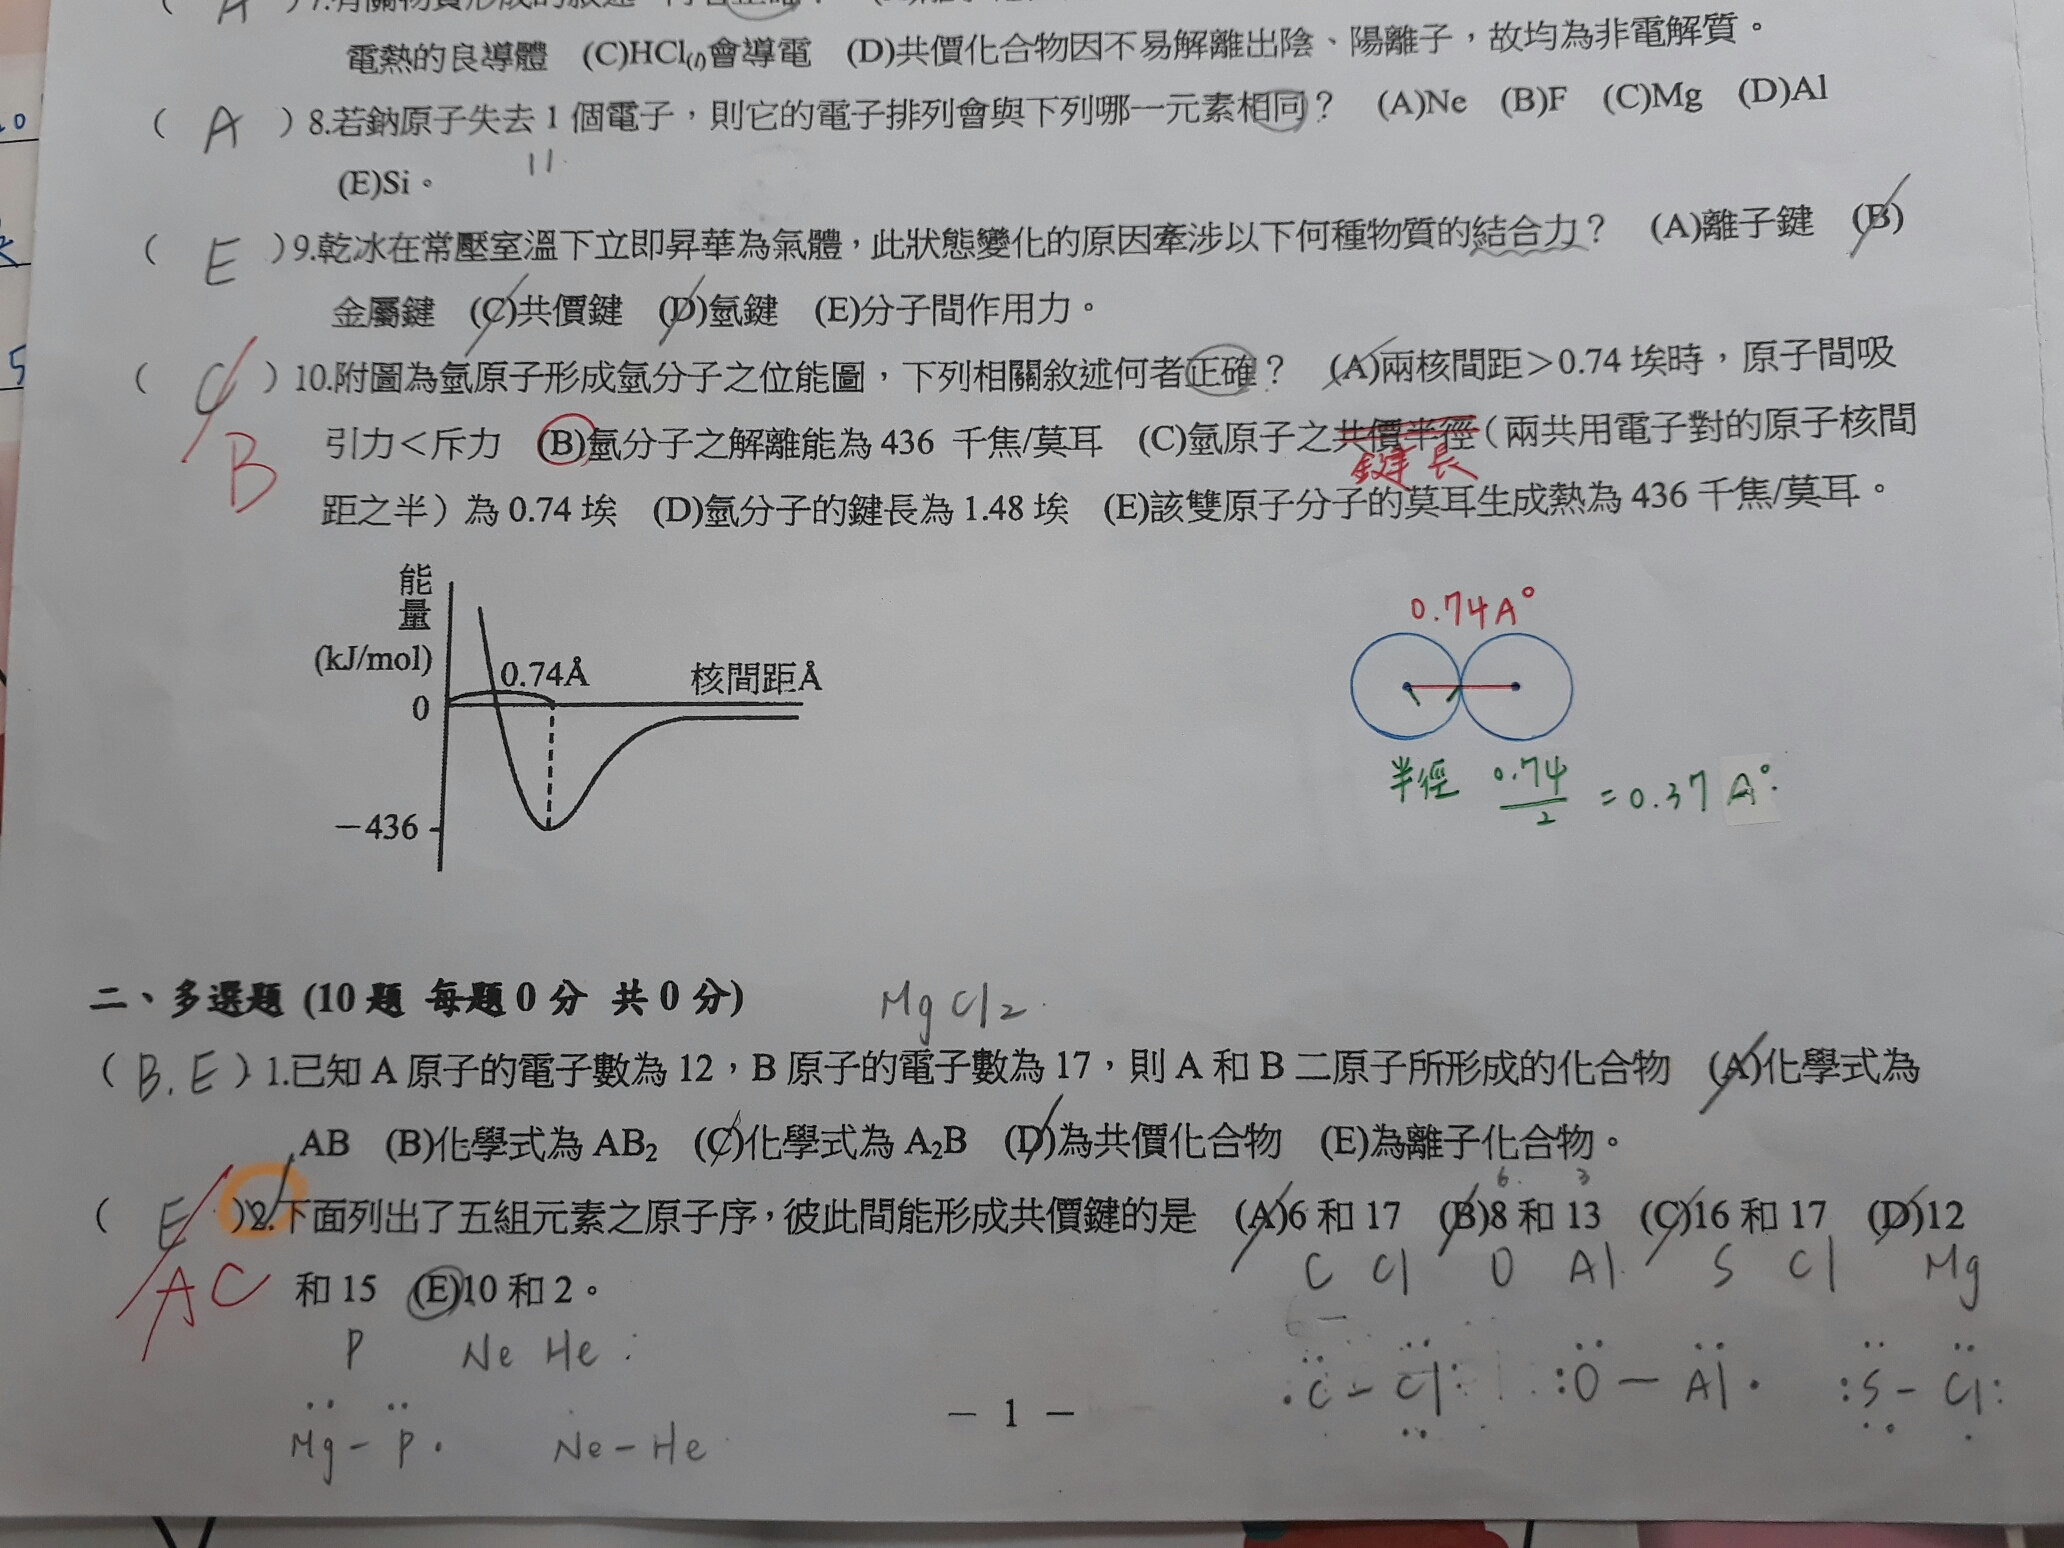 電熱的良導體 (C)HCl(l)會導電 (D)共價化合物因不易解離出陰、陽離子，故均為非電解質。
( A )8.若鈉原子失去 1 個電子，則它的電子排列會與下列哪一元素相同？ (A)Ne (B)F (C)Mg (D)Al
11
(E)Si。
( E )9.乾冰在常壓室溫下立即昇華為氣體，此狀態變化的原因牽涉以下何種物質的結合力？ (A)離子鍵 (B)
金屬鍵 (C)共價鍵 (D)氫鍵 (E)分子間作用力。
( C )10.附圖為氫原子形成氫分子之位能圖，下列相關敘述何者正確？ (A)兩核間距＞0.74 埃時，原子間吸
B
引力＜斥力 (B)氫分子之解離能為 436 千焦/莫耳 (C)氫原子之共價半徑（兩共用電子對的原子核間
鍵長
距之半）為 0.74 埃 (D)氫分子的鍵長為 1.48 埃 (E)該雙原子分子的莫耳生成熱為 436 千焦/莫耳。
能量
(kJ/mol)
0.74Å
核間距Å
0
－436
0.74A°
半徑 0.74/2 = 0.37 A°
二、多選題 (10 題 每題 0 分 共 0 分)
MgCl2
( B.E ) 1.已知 A 原子的電子數為 12，B 原子的電子數為 17，則 A 和 B 二原子所形成的化合物 (A)化學式為
AB (B)化學式為 AB₂ (C)化學式為 A₂B (D)為共價化合物 (E)為離子化合物。
6 3
( E )2.下面列出了五組元素之原子序，彼此間能形成共價鍵的是 (A)6 和 17 (B)8 和 13 (C)16 和 17 (D)12
C Cl O Al S Cl Mg
AC
和 15 (E)10 和 2。
P Ne He
C - Cl O - Al S - Cl
Mg - P Ne - He
－ 1 －